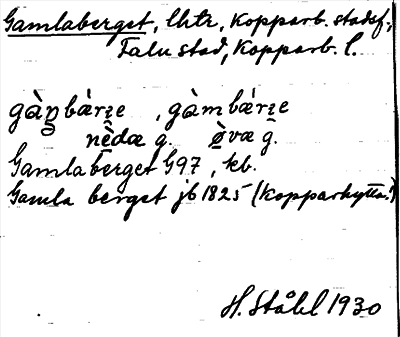 Gamlaberget, lhtr, Kopparb. stadsf.,
Falu stad, Kopparb. l.
gàm̥bárɪe , gàmbárɪe
nèdæ g. ø̀væ g.
Gamlaberget G97, kb.
Gamla berget jb 1825 (Kopparhytta!)
H. Ståhl 1930